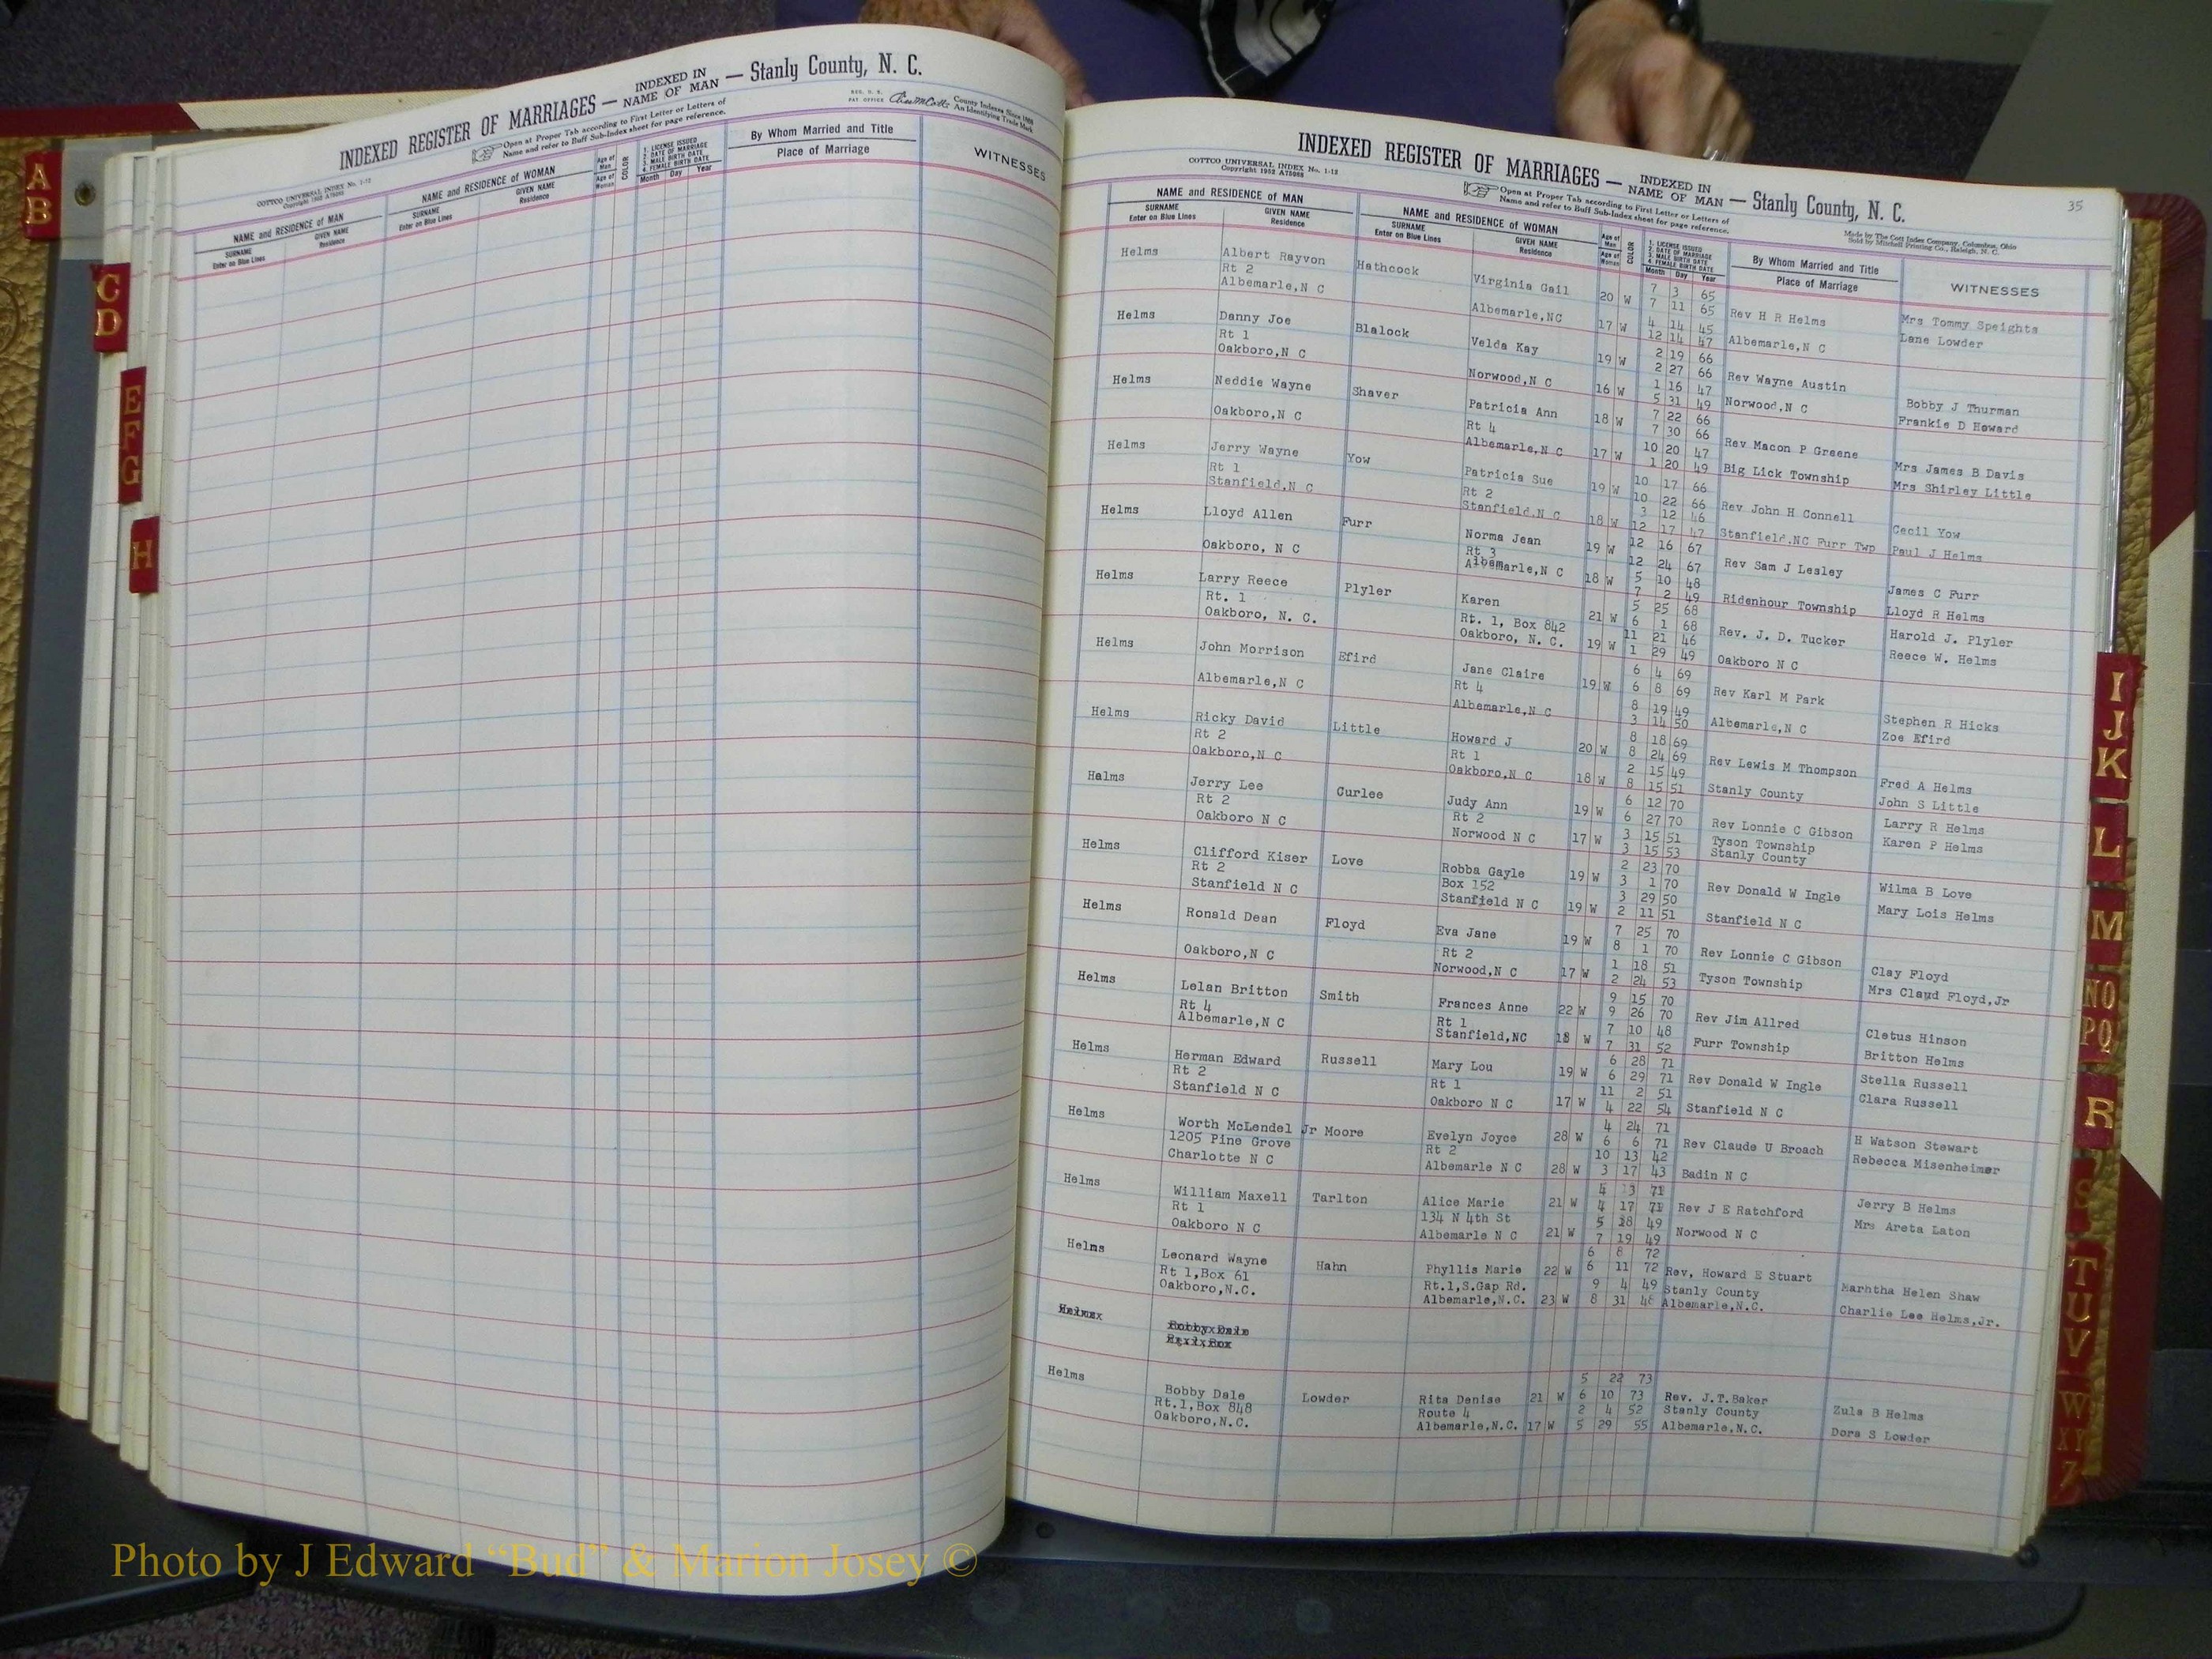 INDEXED REGISTER OF MARRIAGES — INDEXED IN NAME OF MAN — Stanly County, N. C.
COTTCO UNIVERSAL INDEX No. 1-12
Copyright 1952 A75088
Open at Proper Tab according to First Letter or Letters of
Name and refer to Buff Sub-Index sheet for page reference.
REG. U. S.
PAT OFFICE
County Indexes Since 1888
An Identifying Trade Mark
NAME and RESIDENCE of MAN
SURNAME
Enter on Blue Lines
GIVEN NAME
Residence
NAME and RESIDENCE of WOMAN
SURNAME
Enter on Blue Lines
GIVEN NAME
Residence
Age of Man
Age of Woman
COLOR
1. LICENSE ISSUED
2. DATE OF MARRIAGE
3. MALE BIRTH DATE
4. FEMALE BIRTH DATE
Month Day Year
By Whom Married and Title
Place of Marriage
WITNESSES
A
B
C
D
E
F
G
H
INDEXED REGISTER OF MARRIAGES — INDEXED IN NAME OF MAN — Stanly County, N. C.
35
COTTCO UNIVERSAL INDEX No. 1-12
Copyright 1952 A75088
Open at Proper Tab according to First Letter or Letters of
Name and refer to Buff Sub-Index sheet for page reference.
Made by The Cott Index Company, Columbus, Ohio
Sold by Mitchell Printing Co., Raleigh, N. C.
NAME and RESIDENCE of MAN
SURNAME
Enter on Blue Lines
GIVEN NAME
Residence
NAME and RESIDENCE of WOMAN
SURNAME
Enter on Blue Lines
GIVEN NAME
Residence
Age of Man
Age of Woman
COLOR
1. LICENSE ISSUED
2. DATE OF MARRIAGE
3. MALE BIRTH DATE
4. FEMALE BIRTH DATE
Month Day Year
By Whom Married and Title
Place of Marriage
WITNESSES
Helms Albert Rayvon Hathcock Virginia Gail 20 W 7 3 65
Rt 2 7 11 65 Rev H R Helms Mrs Tommy Speights
Albemarle,N C Albemarle,NC 17 W 4 14 45 Lane Lowder
12 14 47 Albemarle,N C
Helms Danny Joe Blalock Velda Kay 19 W 2 19 66
Rt 1 2 27 66 Rev Wayne Austin Bobby J Thurman
Oakboro,N C Norwood,N C 16 W 1 16 47 Frankie D Howard
5 31 49 Norwood,N C
Helms Neddie Wayne Shaver Patricia Ann 18 W 7 22 66
Rt 4 7 30 66 Rev Macon P Greene Mrs James B Davis
Oakboro,N C Albemarle,N C 17 W 10 20 47 Mrs Shirley Little
1 20 49 Big Lick Township
Helms Jerry Wayne Yow Patricia Sue 19 W 10 17 66
Rt 1 Rt 2 10 22 66 Rev John H Connell Cecil Yow
Stanfield,N C Stanfield,N C 18 W 3 12 46 Paul J Helms
12 17 47 Stanfield,NC Furr Twp
Helms Lloyd Allen Furr Norma Jean 19 W 12 16 67
Rt 3 12 24 67 Rev Sam J Lesley James C Furr
Oakboro, N C Albemarle,N C 18 W 5 10 48 Lloyd R Helms
7 2 49 Ridenhour Township
Helms Larry Reece Plyler Karen 21 W 5 25 68
Rt. 1 Rt. 1, Box 842 6 1 68 Rev. J. D. Tucker Harold J. Plyler
Oakboro, N. C. Oakboro, N. C. 19 W 11 21 46 Reece W. Helms
1 29 49 Oakboro N C
Helms John Morrison Efird Jane Claire 19 W 6 4 69
Rt 4 6 8 69 Rev Karl M Park Stephen R Hicks
Albemarle,N C Albemarle,N C 8 19 49 Zoe Efird
3 14 50 Albemarle,N C
Helms Ricky David Little Howard J 20 W 8 18 69
Rt 2 Rt 1 8 24 69 Rev Lewis M Thompson Fred A Helms
Oakboro,N C Oakboro,N C 18 W 2 15 49 John S Little
8 15 51 Stanly County
Halms Jerry Lee Curlee Judy Ann 19 W 6 12 70
Rt 2 Rt 2 6 27 70 Rev Lonnie C Gibson Larry R Helms
Oakboro N C Norwood N C 17 W 3 15 51 Tyson Township Karen P Helms
3 15 53 Stanly County
Helms Clifford Kiser Love Robba Gayle 19 W 2 23 70
Rt 2 Box 152 3 1 70 Rev Donald W Ingle Wilma B Love
Stanfield N C Stanfield N C 19 W 3 29 50 Mary Lois Helms
2 11 51 Stanfield N C
Helms Ronald Dean Floyd Eva Jane 19 W 7 25 70
Rt 2 8 1 70 Rev Lonnie C Gibson Clay Floyd
Oakboro,N C Norwood,N C 17 W 1 18 51 Mrs Claud Floyd,Jr
2 24 53 Tyson Township
Helms Lelan Britton Smith Frances Anne 22 W 9 15 70
Rt 4 Rt 1 9 26 70 Rev Jim Allred Cletus Hinson
Albemarle,N C Stanfield,NC 18 W 7 10 48 Britton Helms
7 31 52 Furr Township
Helms Herman Edward Russell Mary Lou 19 W 6 28 71
Rt 2 Rt 1 6 29 71 Rev Donald W Ingle Stella Russell
Stanfield N C Oakboro N C 17 W 11 2 51 Clara Russell
4 22 54 Stanfield N C
Helms Worth McLendel Jr Moore Evelyn Joyce 28 W 4 24 71
1205 Pine Grove Rt 2 6 6 71 Rev Claude U Broach H Watson Stewart
Charlotte N C Albemarle N C 28 W 10 13 42 Rebecca Misenheimer
3 17 43 Badin N C
Helms William Maxell Tarlton Alice Marie 21 W 4 13 71
Rt 1 134 N 4th St 4 17 71 Rev J E Ratchford Jerry B Helms
Oakboro N C Albemarle N C 21 W 5 28 49 Mrs Areta Laton
7 19 49 Norwood N C
Helms Leonard Wayne Hahn Phyllis Marie 22 W 6 8 72
Rt 1,Box 61 Rt.1,S.Gap Rd. 6 11 72 Rev, Howard E Stuart Marhtha Helen Shaw
Oakboro,N.C. Albemarle,N.C. 23 W 9 4 49 Stanly County Charlie Lee Helms,Jr.
8 31 48 Albemarle,N.C.
Helms Bobby Dale Lowder Rita Denise 21 W 5 22 73
Rt.1,Box 848 Route 4 6 10 73 Rev. J.T.Baker Zula B Helms
Oakboro,N.C. Albemarle,N.C. 17 W 2 4 52 Stanly County Dora S Lowder
5 29 55 Albemarle,N.C.
I
J
K
L
M
NO
PQ
R
S
T
U
V
W
XY
Z
Photo by J Edward “Bud” & Marion Josey ©